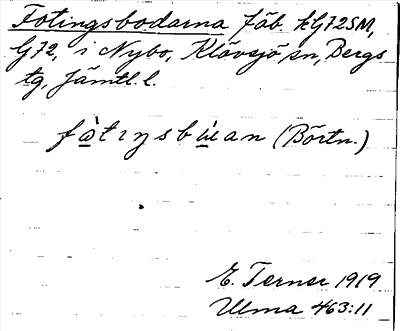 Fotingsbodarna fäb. kG72SM,
G72, i Nybo, Klövsjö sn, Bergs
tg, Jämtl. l.
(Börtn.)
E. Terner 1919
Ulma 463:11